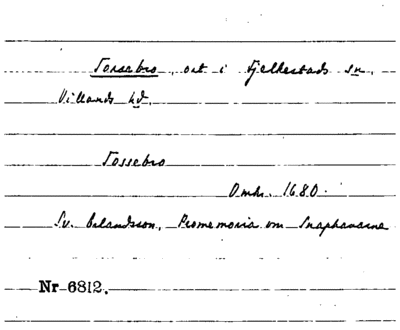 Torsebro, ort i Fjelkestads sn,
Villands hd.
Tossebro
Omkr. 1680.
Sv. Erlandsson, Promemoria om Snaphanarne
Nr 6812.